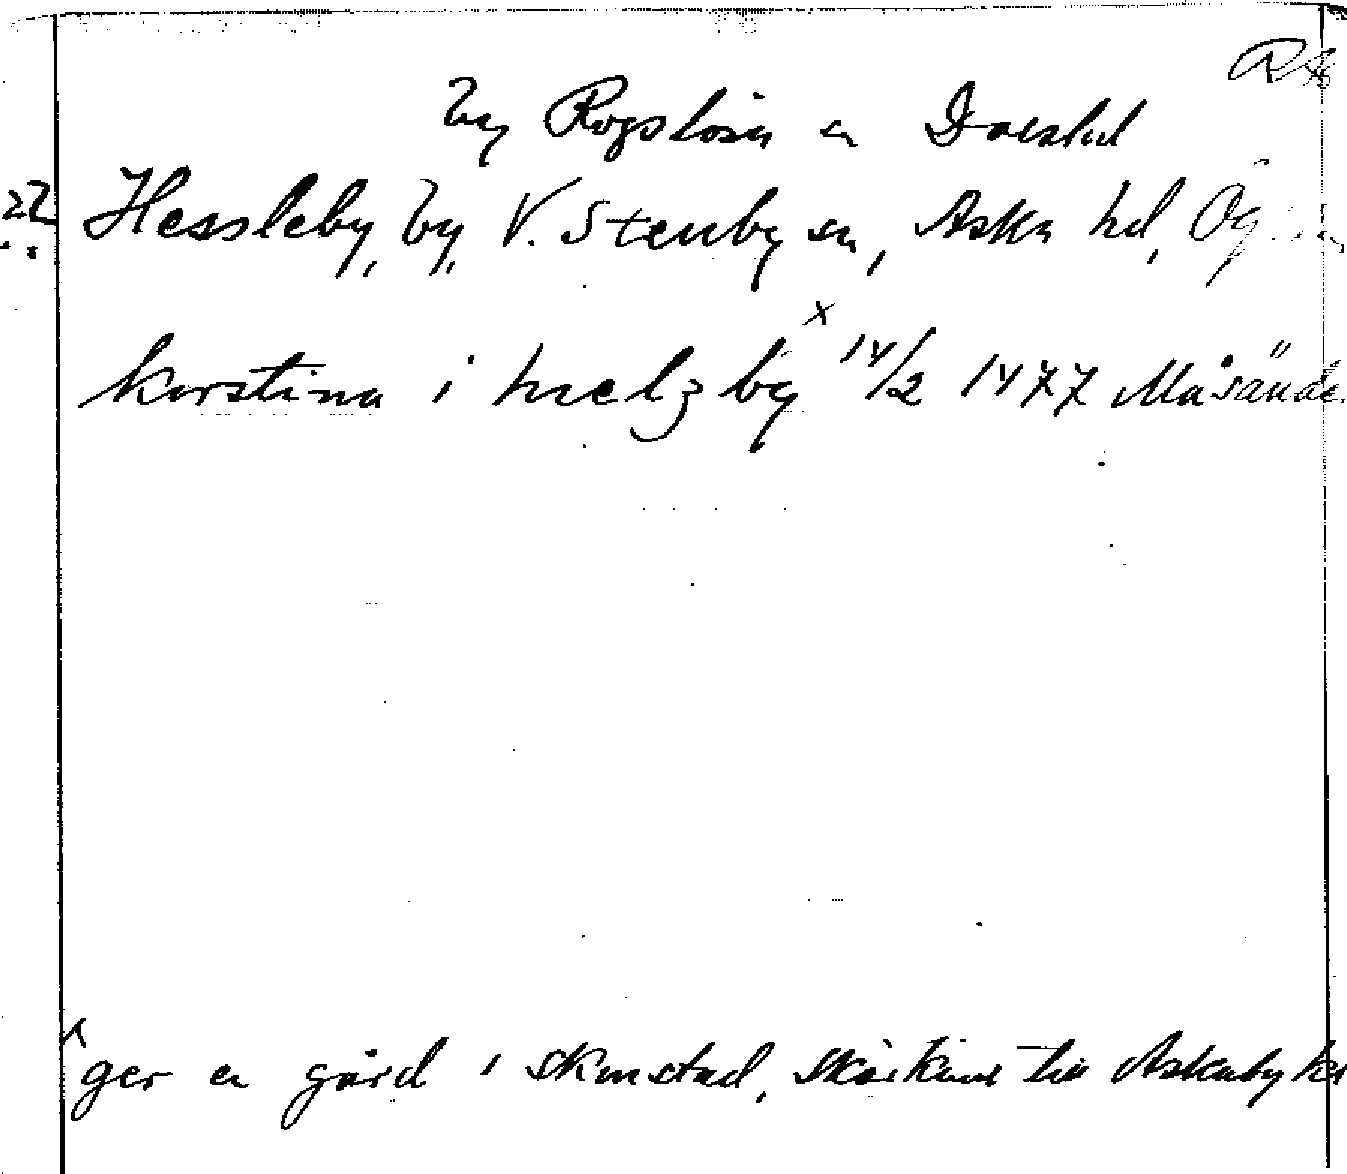 RA
by Rogslösa sn Dals hd
22
Hessleby, by, V. Stenby sn, Aska hd, Ög
kerstina i hælzby x 14/2 1477 Måsände
ger en gård i Skenstad, till Askaby